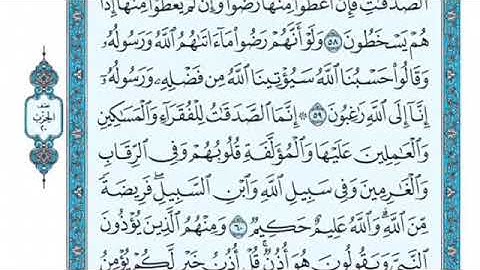 الصَّدَقَٰتِ فَإِنْ أُعْطُوا۟ مِنْهَا رَضُوا۟ وَإِن لَّمْ يُعْطَوْا۟ مِنْهَآ إِذَا
هُمْ يَسْخَطُونَ ٥٨ وَلَوْ أَنَّهُمْ رَضُوا۟ مَآ ءَاتَىٰهُمُ ٱللَّهُ وَرَسُولُهُۥ
وَقَالُوا۟ حَسْبُنَا ٱللَّهُ سَيُؤْتِينَا ٱللَّهُ مِن فَضْلِهِۦ وَرَسُولُهُۥٓ
إِنَّآ إِلَى ٱللَّهِ رَٰغِبُونَ ٥٩ ۞ إِنَّمَا ٱلصَّدَقَٰتُ لِلْفُقَرَآءِ وَٱلْمَسَٰكِينِ
وَٱلْعَٰمِلِينَ عَلَيْهَا وَٱلْمُؤَلَّفَةِ قُلُوبُهُمْ وَفِى ٱلرِّقَابِ
وَٱلْغَٰرِمِينَ وَفِى سَبِيلِ ٱللَّهِ وَٱبْنِ ٱلسَّبِيلِ ۖ فَرِيضَةً
مِّنَ ٱللَّهِ ۗ وَٱللَّهُ عَلِيمٌ حَكِيمٌ ٦٠ وَمِنْهُمُ ٱلَّذِينَ يُؤْذُونَ
ٱلنَّبِىَّ وَيَقُولُونَ هُوَ أُذُنٌ ۚ قُلْ أُذُنُ خَيْرٍ لَّكُمْ يُؤْمِنُ
نصف
الحزب
٢٠